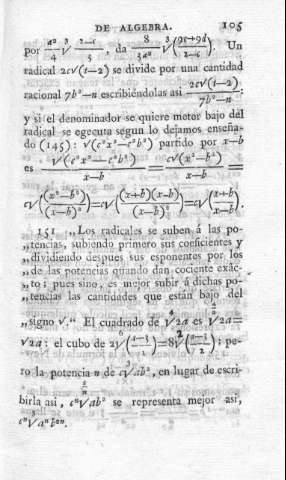 DE ALGEBRA. 105
radical 2c√(t−2) se divide por una cantidad
racional 7b²−n escribiéndolas asi 2c√(t−2)/7b²−n:
y si el denominador se quiere meter bajo del
radical se egecuta segun lo dejamos enseña-
do (145): √(c²x²−c²b²) partido por x−b
es √(c²x²−c²b²)/x−b = c√(x²−b²)/x−b =
c√((x²−b²)/(x−b)²)=c√((x+b)(x−b)/(x−b)²)=c√((x+b)/(x−b)).
151 „Los radicales se suben á las po-
„tencias, subiendo primero sus coeficientes y
„dividiendo despues sus exponentes por los
„de las potencias quando dan cociente exác-
„to; pues sino, es mejor subir á dichas po-
„tencias las cantidades que están bajo del
„signo √.“ El cuadrado de ⁴√2a es ²√2a=
√2a: el cubo de
ro la potencia n de c³√ab², en lugar de escri-
birla asi, cⁿ√ab² se representa mejor asi,
cⁿ³√aⁿb²ⁿ.